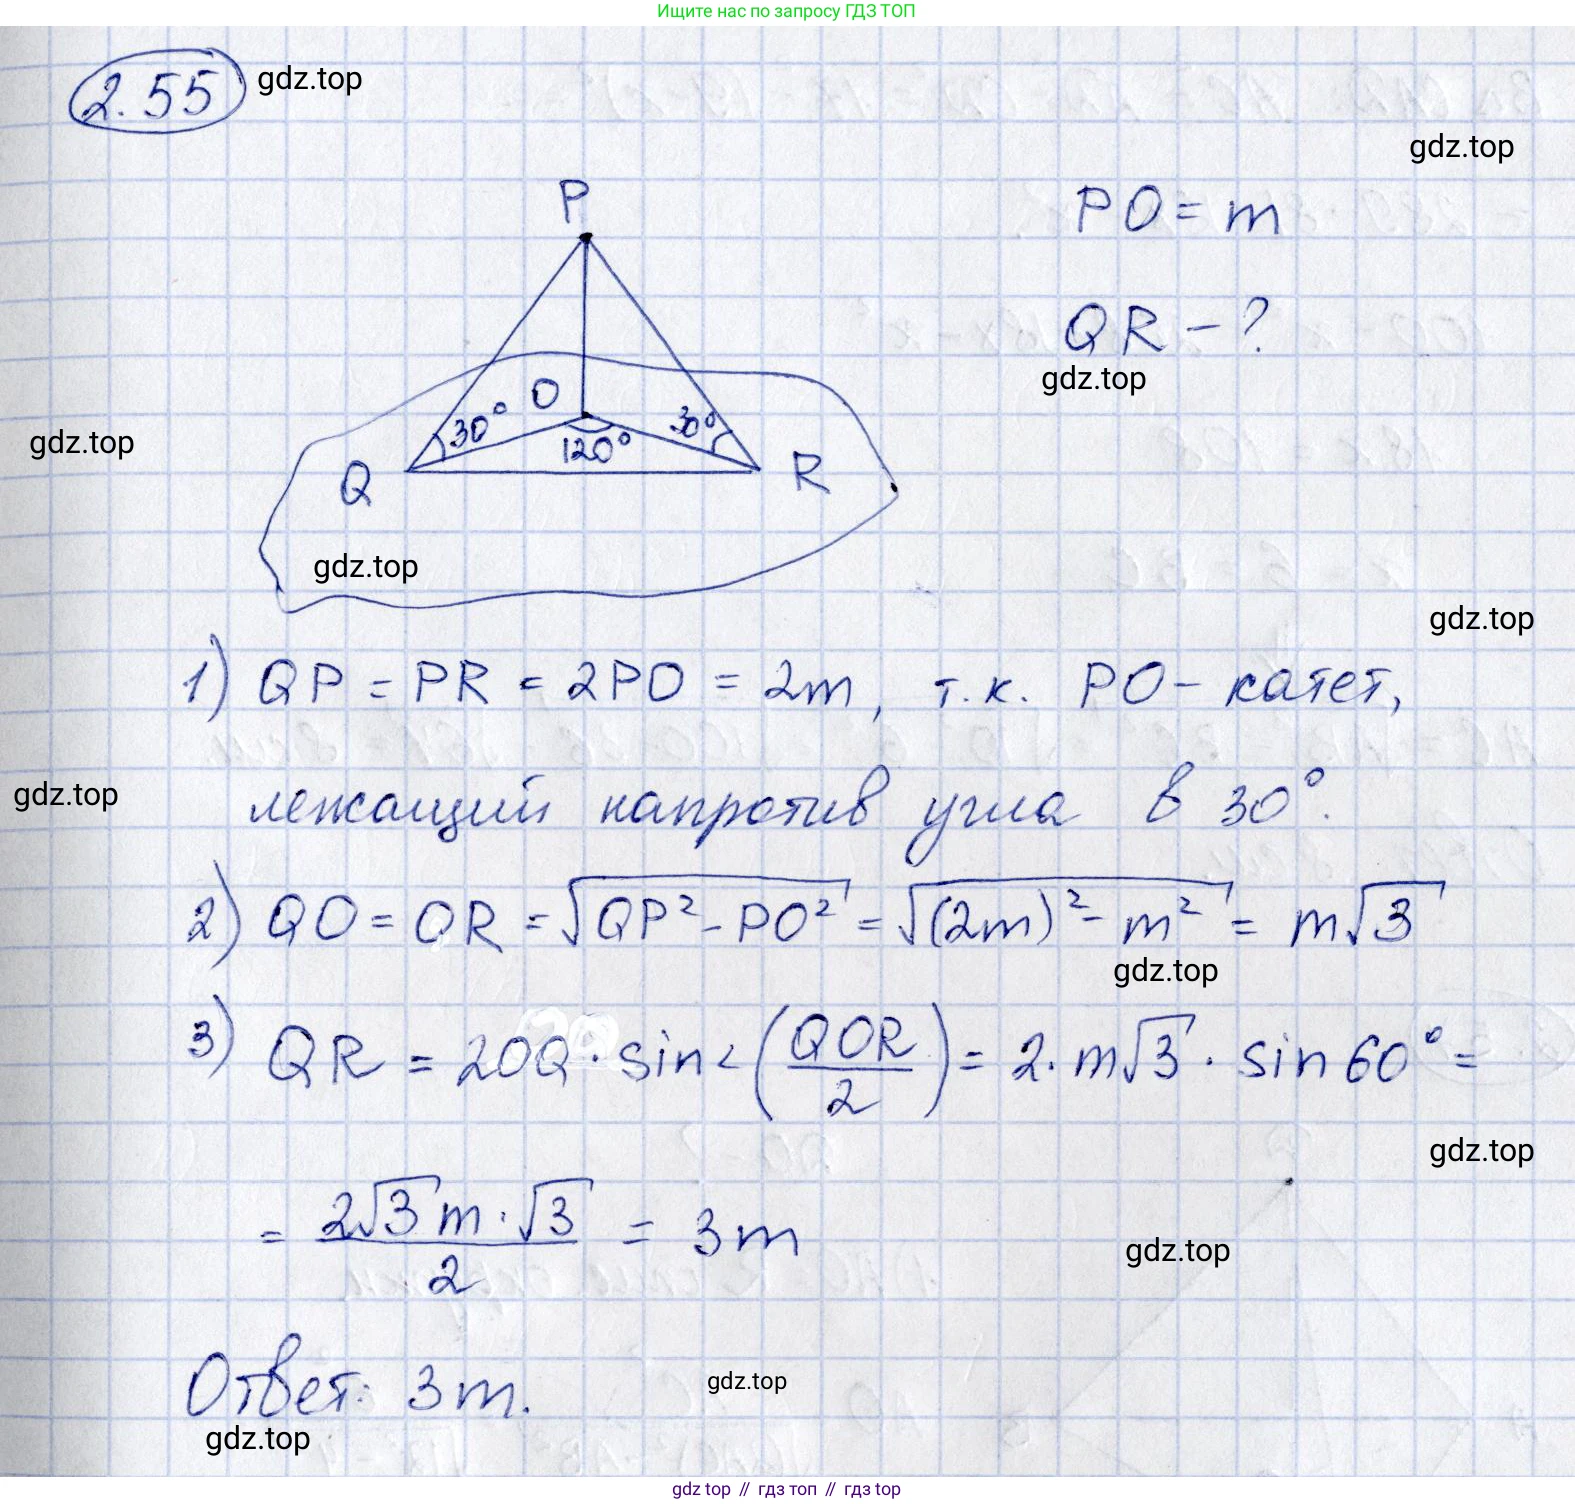 Ищите нас по запросу ГДЗ ТОП
2.55 gdz.top
gdz.top
P
PO = m
QR - ?
gdz.top
O
30° 30°
120°
gdz.top
Q R
gdz.top
gdz.top
1) QP = PR = 2PO = 2m, т.к. PO - катет,
gdz.top
лежащий напротив угла в 30°.
2) QO = OR = √(QP² - PO²) = √((2m)² - m²) = m√3
gdz.top
3) QR = 2OQ · sin∠(QOR/2) = 2 · m√3 · sin60° =
gdz.top
= 2√3m·√3/2 = 3m
gdz.top
Ответ: 3m.
gdz.top
gdz.top
gdz.top // гдз топ // гдз top